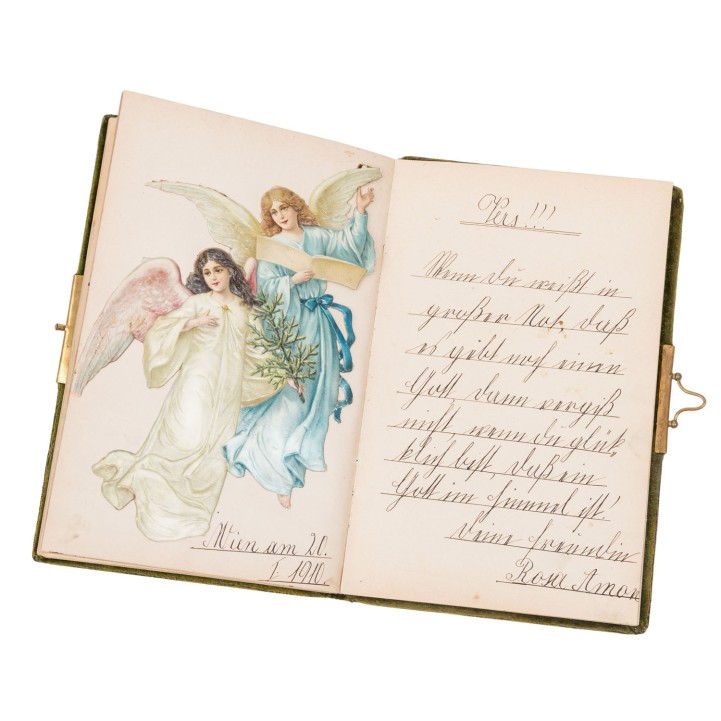 Wien am 20.
I. 1910.
Vers!!!
Wenn du weißt in
großer Not, daß
es gibt noch einen
Gott, dann vergiß
nicht, wenn du glück
klich bist, daß ein
Gott im Himmel ist!
Deine Freundin
Rosa Amon